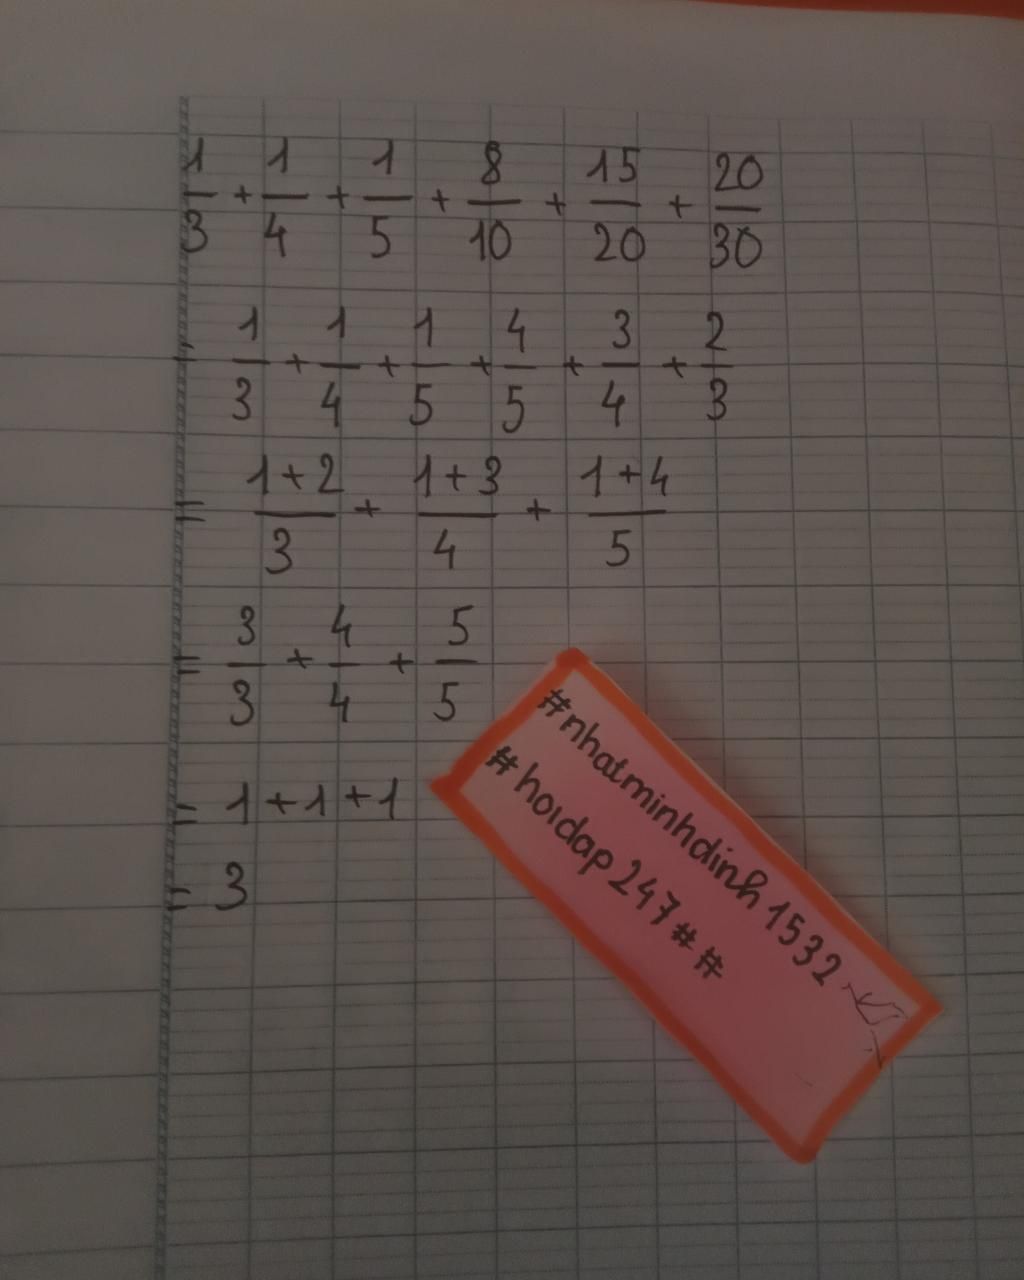 1/3 + 1/4 + 1/5 + 8/10 + 15/20 + 20/30
= 1/3 + 1/4 + 1/5 + 4/5 + 3/4 + 2/3
= (1+2)/3 + (1+3)/4 + (1+4)/5
= 3/3 + 4/4 + 5/5
= 1+1+1
= 3
#nhatminhdinh1532
#hoidap247##